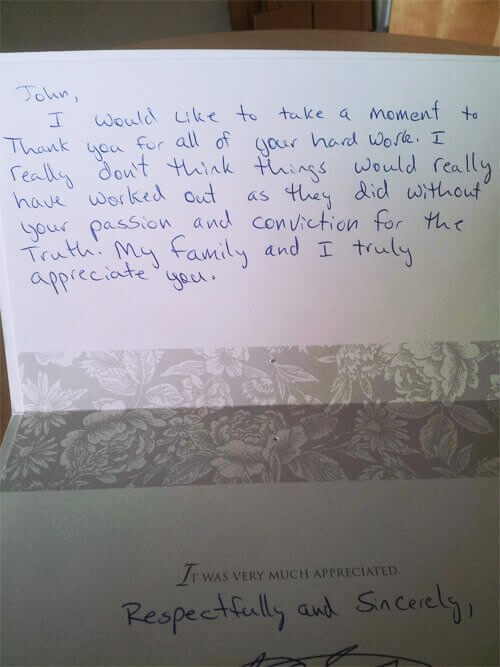 John,
I would like to take a moment to
Thank you for all of your hard work. I
really don't think things would really
have worked out as they did without
your passion and conviction for the
Truth. My family and I truly
appreciate you.
IT WAS VERY MUCH APPRECIATED.
Respectfully and Sincerely,